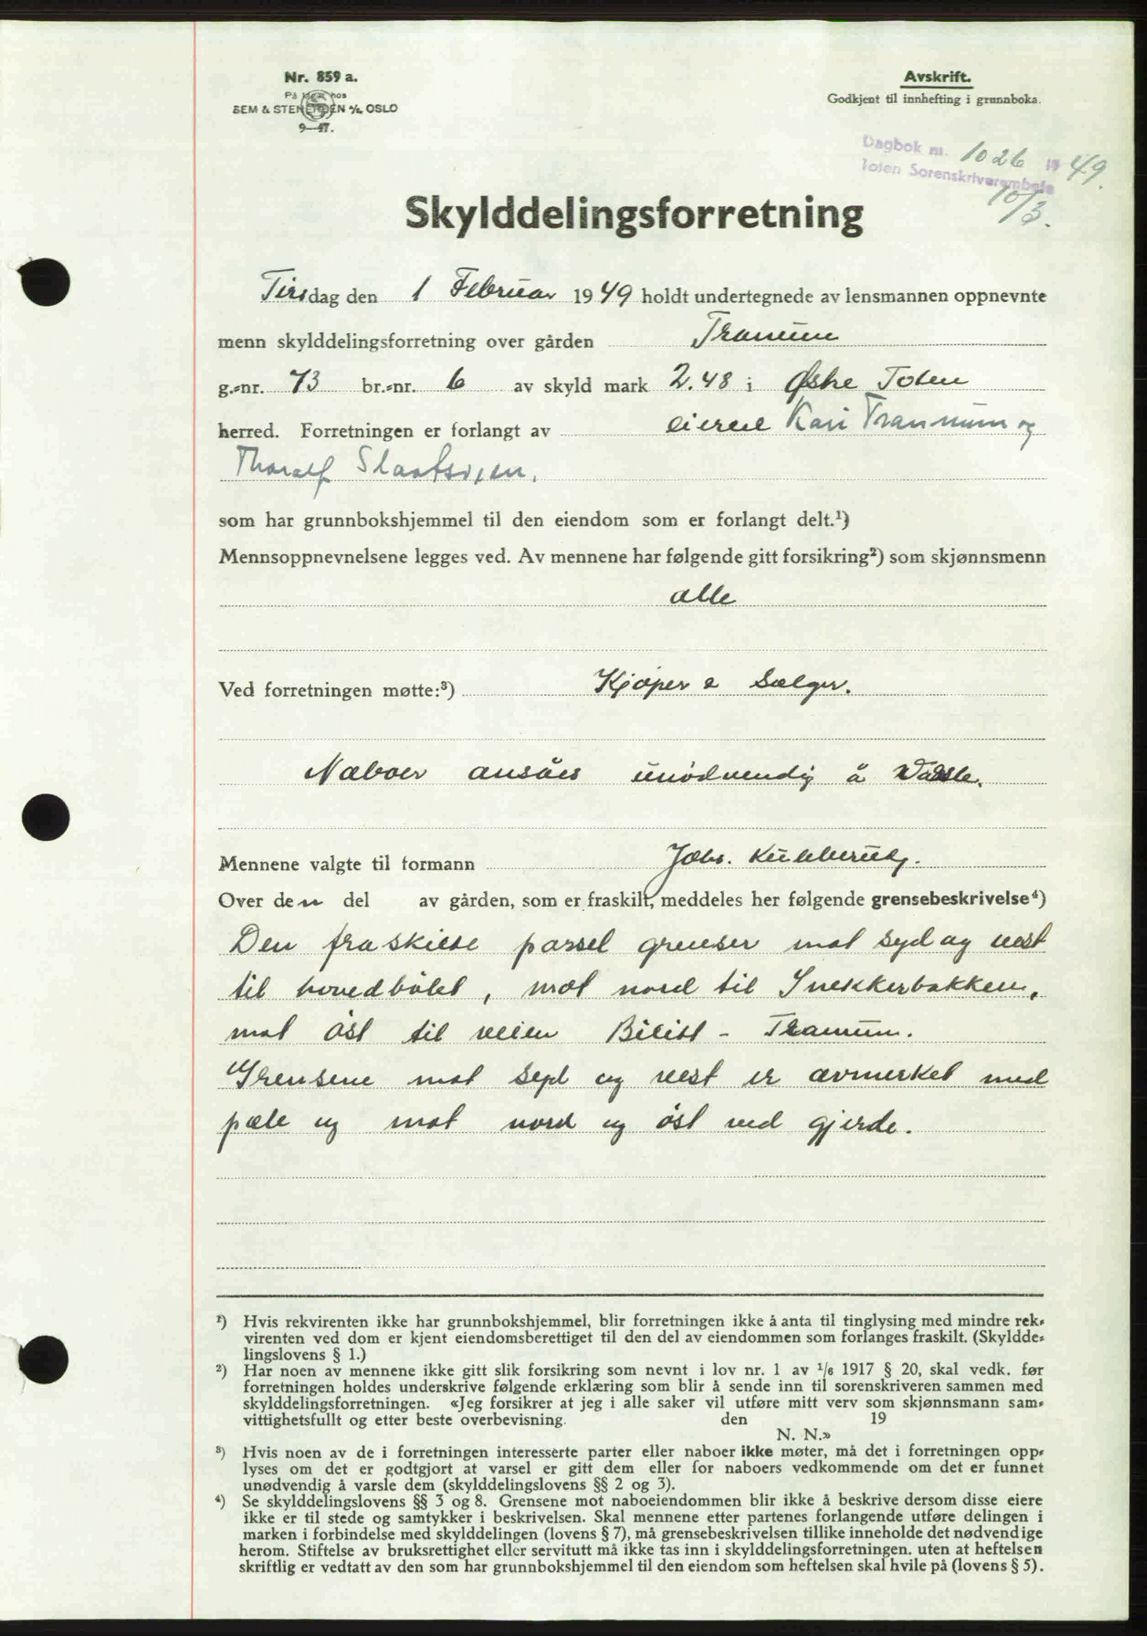 Nr. 859 a.
På lager hos
SEM & STENERSEN A/S, OSLO
9—47.
Avskrift.
Godkjent til innhefting i grunnboka.
Dagbok nr. 1026 1949.
Toten Sorenskriverembete
10/3.
Skylddelingsforretning
Tirsdag den 1 Februar 1949 holdt undertegnede av lensmannen oppnevnte
menn skylddelingsforretning over gården Tranum
g.-nr. 73 br.-nr. 6 av skyld mark 2.48 i Østre Toten
herred. Forretningen er forlangt av eierne Kari Trannum og
Thoralf
som har grunnbokshjemmel til den eiendom som er forlangt delt.¹)
Mennsoppnevnelsene legges ved. Av mennene har følgende gitt forsikring²) som skjønnsmenn
alle
Ved forretningen møtte:³) Kjøper & Sælger.
Naboer ansåes unødvendig å varsle.
Mennene valgte til formann Johs. Kubberud.
Over den del av gården, som er fraskilt, meddeles her følgende grensebeskrivelse⁴)
Den fraskilte parsel grenser mot syd og vest
til hovedbølet, mot nord til Snekkerbakken,
mot øst til veien Bilitt - Tranum.
Grensene mot syd og vest er avmerket med
pæle og mot nord og øst ved gjerde.
¹) Hvis rekvirenten ikke har grunnbokshjemmel, blir forretningen ikke å anta til tinglysing med mindre rek-
virenten ved dom er kjent eiendomsberettiget til den del av eiendommen som forlanges fraskilt. (Skyldde-
lingslovens § 1.)
²) Har noen av mennene ikke gitt slik forsikring som nevnt i lov nr. 1 av 1/6 1917 § 20, skal vedk. før
forretningen holdes underskrive følgende erklæring som blir å sende inn til sorenskriveren sammen med
skylddelingsforretningen. «Jeg forsikrer at jeg i alle saker vil utføre mitt verv som skjønnsmann sam-
vittighetsfullt og etter beste overbevisning. den 19
N. N.»
³) Hvis noen av de i forretningen interesserte parter eller naboer ikke møter, må det i forretningen opp-
lyses om det er godtgjort at varsel er gitt dem eller for naboers vedkommende om det er funnet
unødvendig å varsle dem (skylddelingslovens §§ 2 og 3).
⁴) Se skylddelingslovens §§ 3 og 8. Grensene mot naboeiendommen blir ikke å beskrive dersom disse eiere
ikke er til stede og samtykker i beskrivelsen. Skal mennene etter partenes forlangende utføre delingen i
marken i forbindelse med skylddelingen (lovens § 7), må grensebeskrivelsen tillike inneholde det nødvendige
herom. Stiftelse av bruksrettighet eller servitutt må ikke tas inn i skylddelingsforretningen, uten at heftelsen
skriftlig er vedtatt av den som har grunnbokshjemmel til den eiendom som heftelsen skal hvile på (lovens § 5).